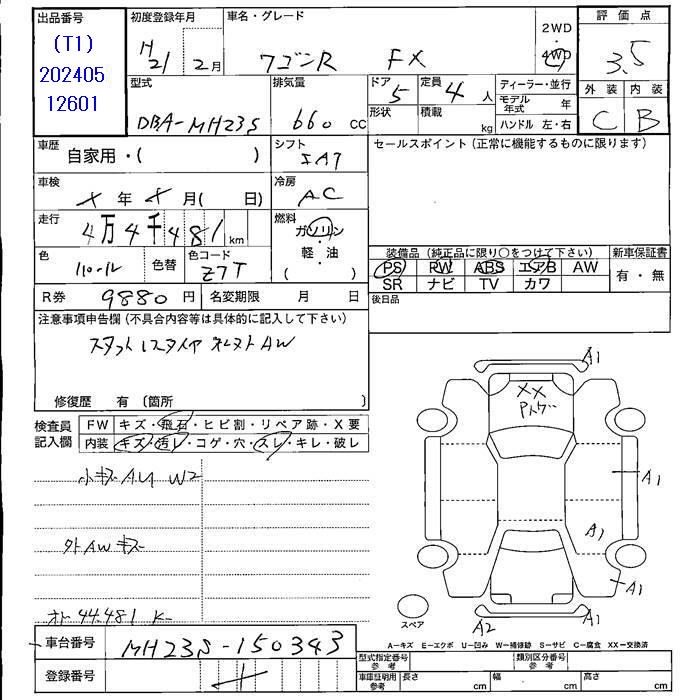 出品番号 初度登録年月 車名・グレード 2WD 評価点
(T1) H21 2月 ワゴンR FX 4WD 3.5
202405
12601
型式 排気量 ドア 5 定員 4人 ディーラー・並行 外装 内装
DBA-MH23S 660 cc 形状 積載 kg モデル年式 年 C B
ハンドル 左・右
車歴 自家用・( ) シフト セールスポイント (正常に機能するものに限ります)
車検 年 月( 日) 冷房 AC
走行 4万4千481 km 燃料 ガソリン
軽・油
( )
色 色替 色コード Z7T
装備品 (純正品に限り○をつけて下さい) 新車保証書
PS PW ABS エアB AW 有・無
SR ナビ TV カワ
R券 9880円 名変期限 月 日 後日品
注意事項申告欄 (不具合内容等は具体的に記入して下さい)
AW
修復歴 有 (箇所 )
検査員 FW キズ・飛石・ヒビ割・リペア跡・X要
記入欄 内装 キズ・汚レ・コゲ・穴・スレ・キレ・破レ
小キズ W2
外AWキズ
44.481 K
A1
XX
A1
A1
A1
スペア A2 A1
A-キズ E-エクボ U-凹み W-補修跡 S-サビ C-腐食 XX-交換済
車台番号 MH23S-150343
登録番号
型式指定番号 参考 類別区分番号 参考
車庫証明用 参考 長さ cm 幅 cm 高さ cm